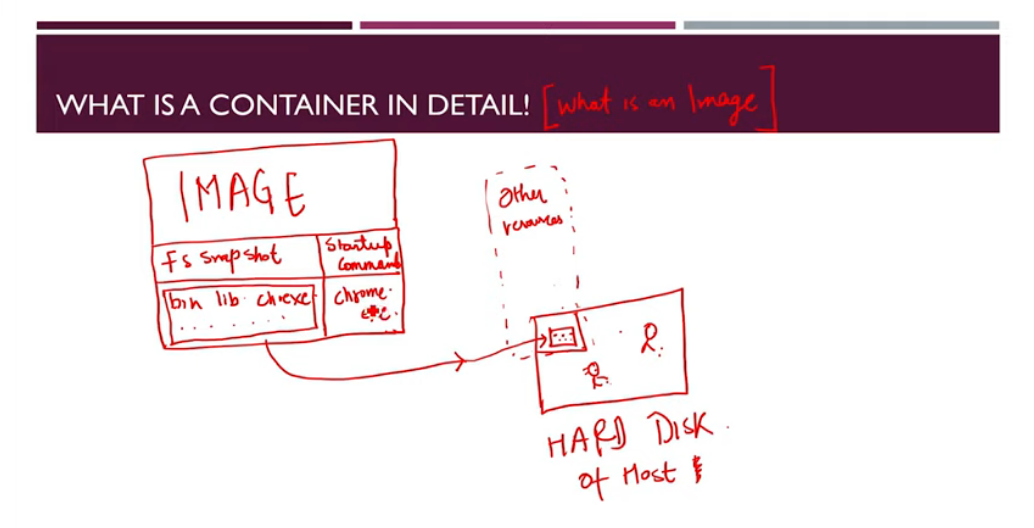 WHAT IS A CONTAINER IN DETAIL! [What is an Image]
IMAGE
Fs snapshot
Startup
Command
bin lib. ch.exe.
chrome.
exe.
Other
resources
HARD DISK.
of Host